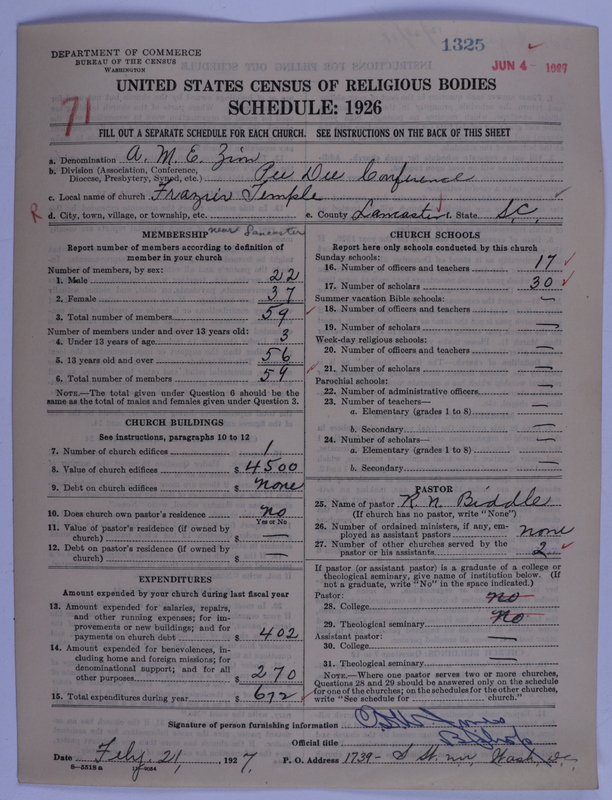 1325
JUN 4 - 1927
DEPARTMENT OF COMMERCE
BUREAU OF THE CENSUS
WASHINGTON
UNITED STATES CENSUS OF RELIGIOUS BODIES
SCHEDULE: 1926
71
FILL OUT A SEPARATE SCHEDULE FOR EACH CHURCH. SEE INSTRUCTIONS ON THE BACK OF THIS SHEET
a. Denomination A. M. E. Zion
b. Division (Association, Conference, Diocese, Presbytery, Synod, etc.) Pee Dee Conference
c. Local name of church Frazier Temple
R d. City, town, village, or township, etc. near Lancaster e. County Lancaster f. State S.C.
MEMBERSHIP
Report number of members according to definition of
member in your church
Number of members, by sex:
1. Male 22
2. Female 37
3. Total number of members 59
Number of members under and over 13 years old:
4. Under 13 years of age 3
5. 13 years old and over 56
6. Total number of members 59
NOTE.—The total given under Question 6 should be the
same as the total of males and females given under Question 3.
CHURCH BUILDINGS
See instructions, paragraphs 10 to 12
7. Number of church edifices 1
8. Value of church edifices $ 4500
9. Debt on church edifices $ none
10. Does church own pastor's residence no
Yes or No
11. Value of pastor's residence (if owned by
church) $ —
12. Debt on pastor's residence (if owned by
church) $ —
EXPENDITURES
Amount expended by your church during last fiscal year
13. Amount expended for salaries, repairs,
and other running expenses; for im-
provements or new buildings; and for
payments on church debt $ 402
14. Amount expended for benevolences, in-
cluding home and foreign missions; for
denominational support; and for all
other purposes $ 270
15. Total expenditures during year $ 672
CHURCH SCHOOLS
Report here only schools conducted by this church
Sunday schools:
16. Number of officers and teachers 17
17. Number of scholars 30
Summer vacation Bible schools:
18. Number of officers and teachers —
19. Number of scholars —
Week-day religious schools:
20. Number of officers and teachers —
21. Number of scholars —
Parochial schools:
22. Number of administrative officers —
23. Number of teachers—
a. Elementary (grades 1 to 8) —
b. Secondary —
24. Number of scholars—
a. Elementary (grades 1 to 8) —
b. Secondary —
PASTOR
25. Name of pastor R. N. Biddle
(If church has no pastor, write "None")
26. Number of ordained ministers, if any, em-
ployed as assistant pastors none
27. Number of other churches served by the
pastor or his assistants 2
If pastor (or assistant pastor) is a graduate of a college or
theological seminary, give name of institution below. (If
not a graduate, write "No" in the space indicated.)
Pastor:
28. College no
29. Theological seminary No
Assistant pastor:
30. College —
31. Theological seminary —
NOTE.—Where one pastor serves two or more churches,
Questions 28 and 29 should be answered only on the schedule
for one of the churches; on the schedules for the other churches,
write "See schedule for church."
Signature of person furnishing information Jones
Official title Bishop
Date Feby. 21, 1927. P. O. Address 1739- S St. nw. Wash, DC
8—5518 a